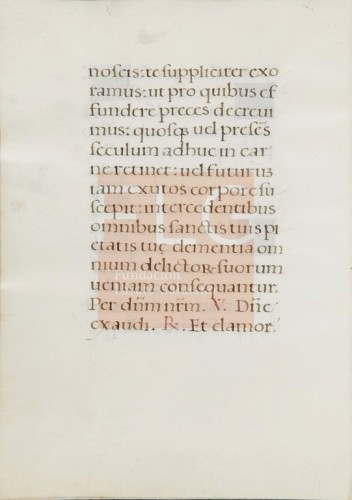 noscis: te suppliciter exo
ramus: ut pro quibus ef
fundere preces decreui
mus: quosqȝ uel presẽs
seculum adhuc in car
ne retinet: uel futurũ
iam exutos corpore su
scepit: intercedentibus
omnibus sanctis tuis pi
etatis tuę clementia om
nium delictoꝝ suorum
ueniam consequantur.
Per dñm nr̃m. V. Dñe
exaudi. R. Et clamor.
FLG
Fundación